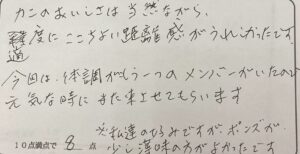 カニのおいしさは当然ながら、
適度にここちよい距離感がうれしかったです
今回は、体調がもう一つのメンバーがいたので
元気な時にまた来させてもらいます
※私達のひろみですが、ポンズが
10点満点で 8 点 少し薄味の方がよかったです